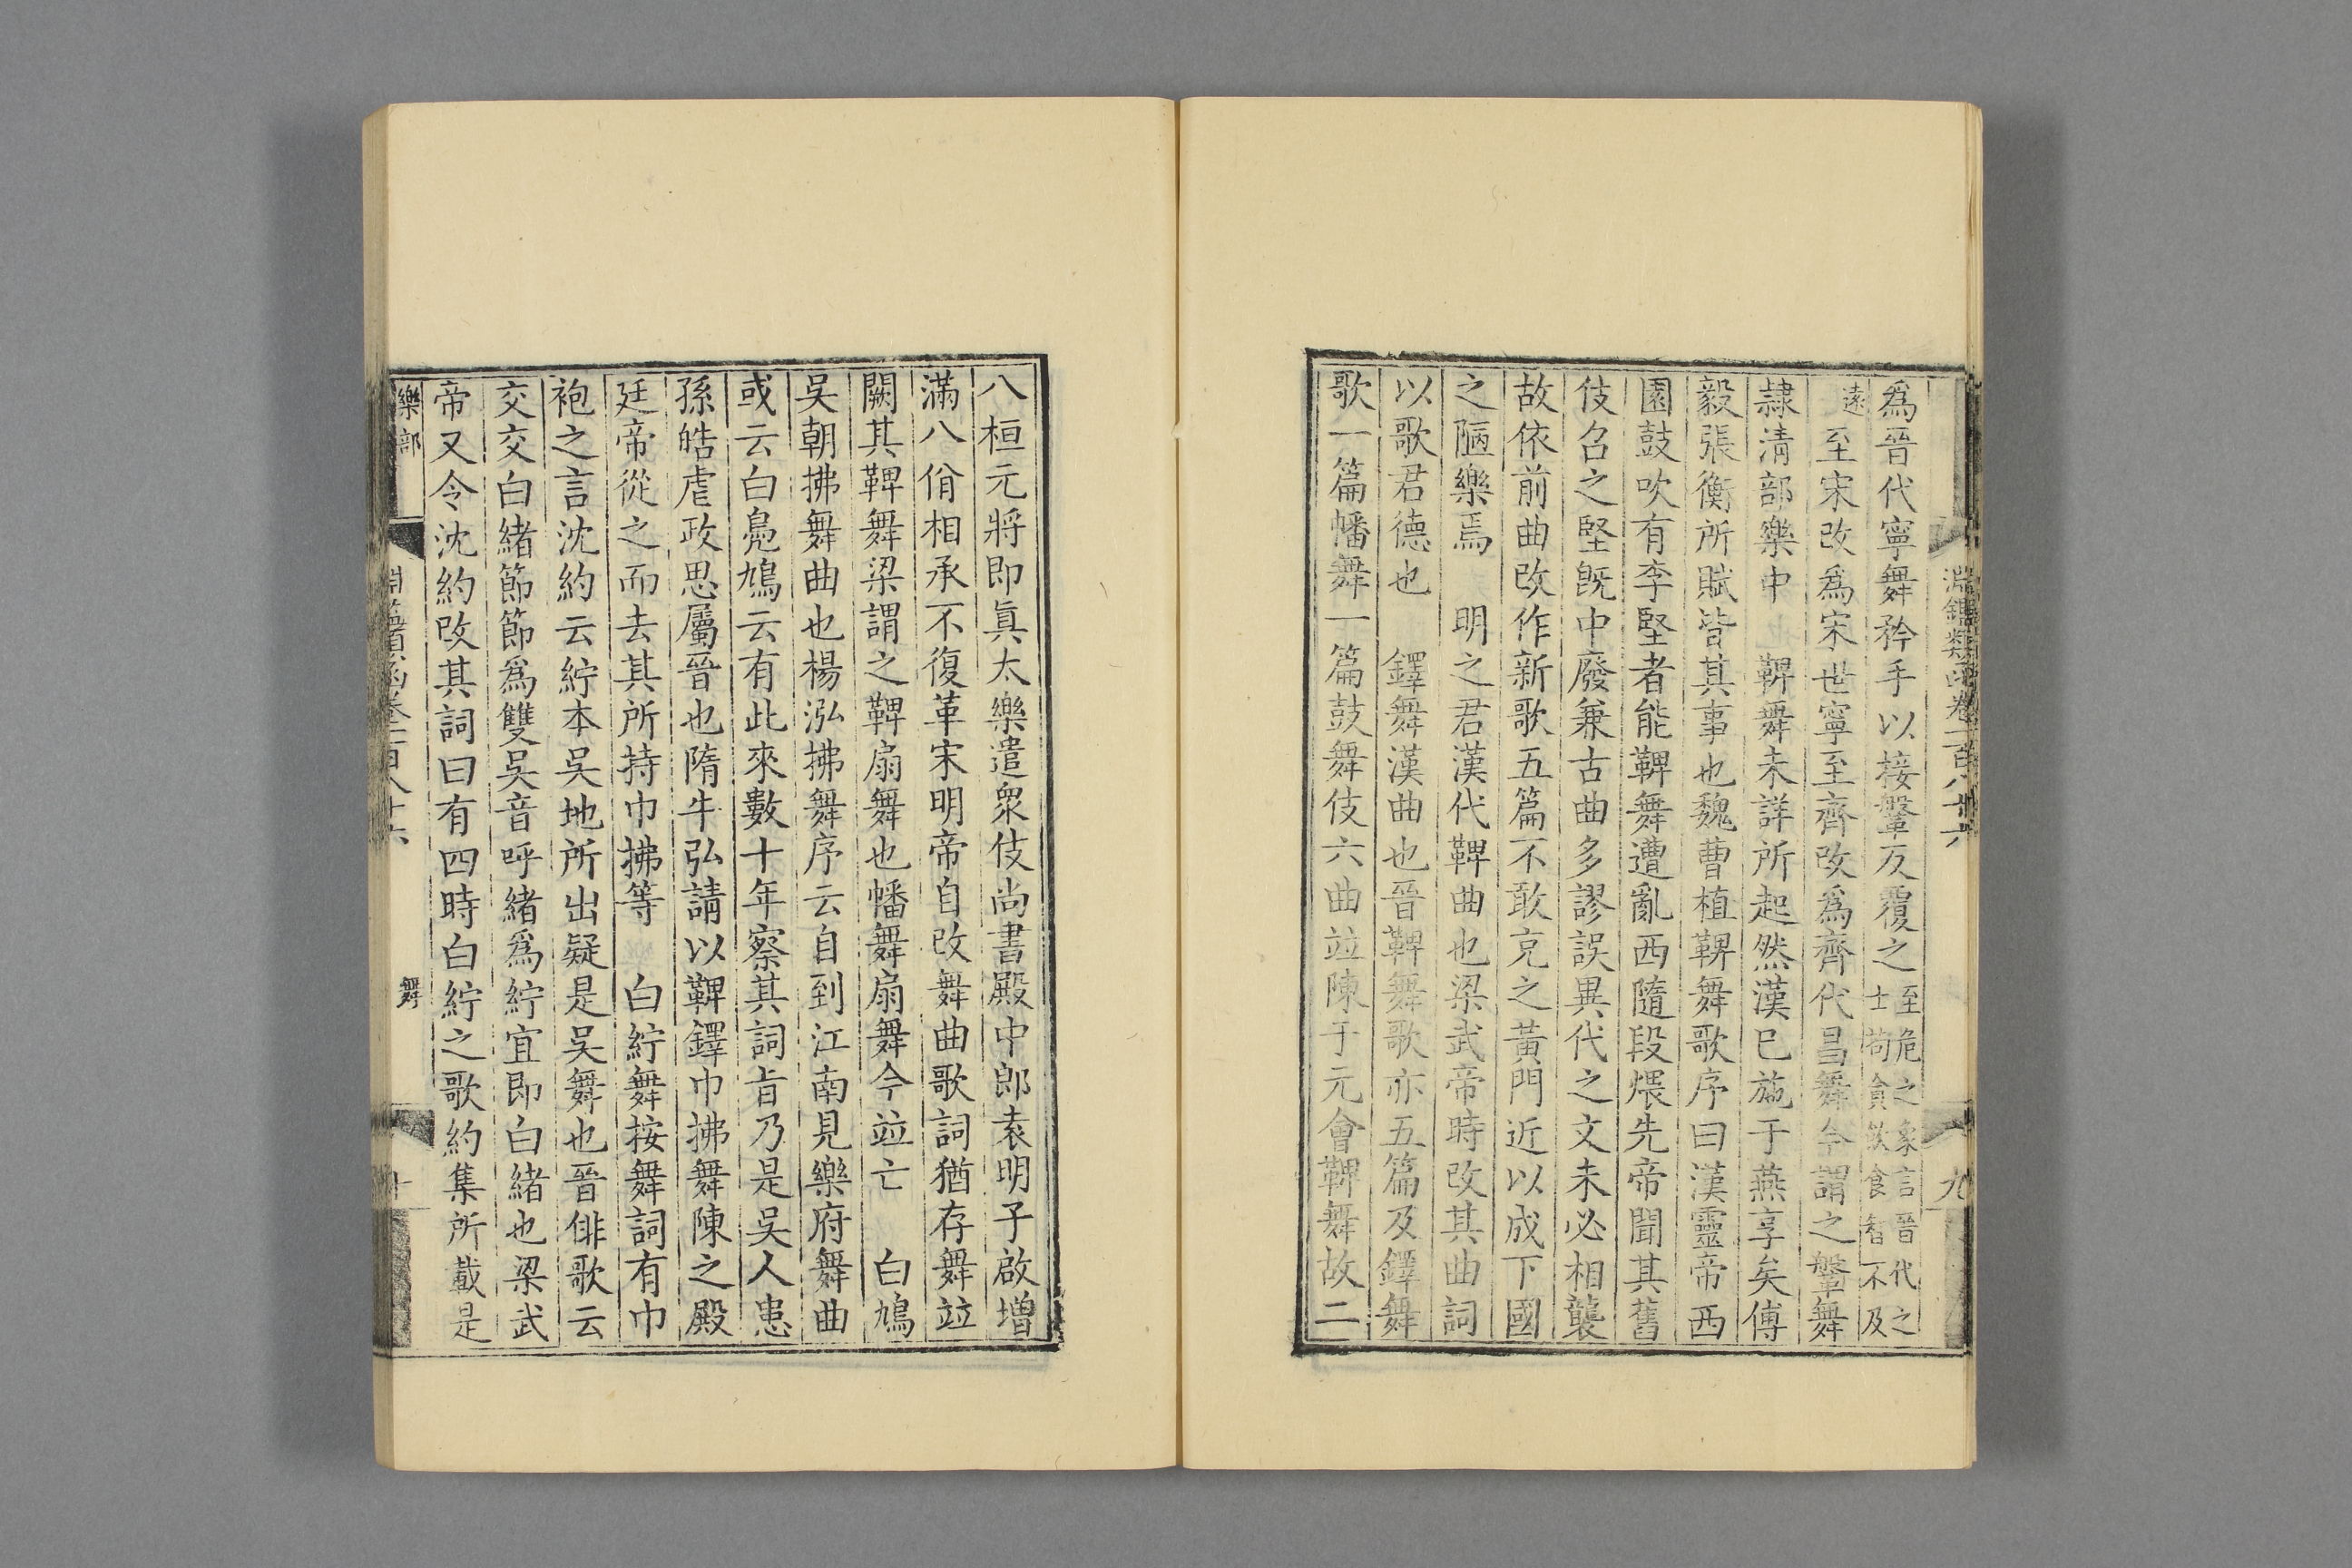 淵鑑類函卷一百八十六
九
爲晉代寧舞矜手以接鞶反覆之至危之象言晉代之士茍貪飲食智不及
遠至宋改爲宋世寧至齊改爲齊代昌舞今謂之鞶舞
隷清部樂中 鞞舞未詳所起然漢已施于燕享矣傅
毅張衡所賦皆其事也魏曹植鞞舞歌序曰漢靈帝西
園鼓吹有李堅者能鞞舞遭亂西隨段煨先帝聞其舊
伎召之堅旣中廢兼古曲多謬誤異代之文未必相襲
故依前曲改作新歌五篇不敢充之黃門近以成下國
之陋樂焉 明之君漢代鞞曲也梁武帝時改其曲詞
以歌君德也 鐸舞漢曲也晉鞞舞歌亦五篇及鐸舞
歌一篇幡舞一篇鼓舞伎六曲竝陳于元會鞞舞故二
八桓元將即眞太樂遣衆伎尚書殿中郎袁明子啟增
滿八佾相承不復革宋明帝自改舞曲歌詞猶存舞竝
闕其鞞舞梁謂之鞞扇舞也幡舞扇舞今竝亡 白鳩
吳朝拂舞曲也楊泓拂舞序云自到江南見樂府舞曲
或云白鳧鳩云有此來數十年察其詞旨乃是吳人患
孫皓虐政思屬晉也隋牛弘請以鞞鐸巾拂舞陳之殿
廷帝從之而去其所持巾拂等 白紵舞按舞詞有巾
袍之言沈約云紵本吳地所出疑是吳舞也晉俳歌云
交交白緒節節爲雙吳音呼緒爲紵宜即白緒也梁武
帝又令沈約改其詞曰有四時白紵之歌約集所載是
樂部
淵鑑類函卷一百八十六
舞
十